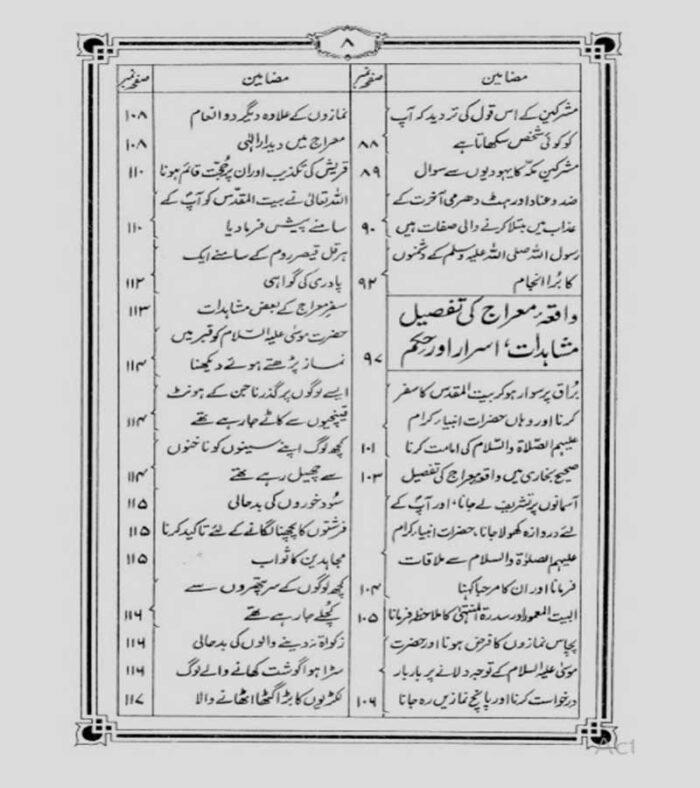 ۸
مضامین
صفحہ نمبر
مشرکین کے اس قول کی تردید کہ آپ
کو کوئی شخص سکھاتا ہے ۸۸
مشرکین مکہ کا یہودیوں سے سوال ۸۹
ضد و عناد اور ہٹ دھرمی آخرت کے
عذاب میں مبتلا کرنے والی صفات ہیں ۹۰
رسول اللہ صلی اللہ علیہ وسلم کے دشمنوں
کا بُرا انجام ۹۲
واقعۂ معراج کی تفصیل
مشاہدات، اسرار اور حِکم ۹۷
بُراق پر سوار ہو کر بیت المقدس کا سفر
کرنا اور وہاں حضرات انبیاء کرام
علیہم الصلاۃ والسلام کی امامت کرنا ۱۰۱
صحیح بخاری میں واقعہ معراج کی تفصیل ۱۰۳
آسمانوں پر تشریف لے جانا، اور آپؐ کے
لئے دروازہ کھولا جانا، حضرات انبیاء کرام
علیہم الصلوٰۃ والسلام سے ملاقات
فرمانا اور ان کا مرحبا کہنا ۱۰۴
البیت المعمور اور سدرۃ المنتہیٰ کا ملاحظہ فرمانا ۱۰۵
پچاس نمازوں کا فرض ہونا اور حضرت
موسیٰ علیہ السلام کے توجہ دلانے پر بار بار
درخواست کرنا اور پانچ نمازیں رہ جانا ۱۰۶
مضامین
صفحہ نمبر
نمازوں کے علاوہ دیگر دو انعام ۱۰۸
معراج میں دیدار الٰہی ۱۰۸
قریش کی تکذیب اور ان پر حُجت قائم ہونا ۱۱۰
اللہ تعالیٰ نے بیت المقدّس کو آپؐ کے
سامنے پیش فرما دیا ۱۱۰
ہرقل قیصر روم کے سامنے ایک
پادری کی گواہی ۱۱۲
سفرِ معراج کے بعض مشاہدات ۱۱۳
حضرت موسیٰ علیہ السلام کو قبر میں
نماز پڑھتے ہوئے دیکھنا ۱۱۴
ایسے لوگوں پر گذرنا جن کے ہونٹ
قینچیوں سے کاٹے جا رہے تھے ۱۱۴
کچھ لوگ اپنے سینوں کو ناخنوں
سے چھیل رہے تھے ۱۱۴
سُود خوروں کی بدحالی ۱۱۵
فرشتوں کا پچھنا لگانے کے لئے تاکید کرنا ۱۱۵
مجاہدین کا ثواب ۱۱۵
کچھ لوگوں کے سر پتھروں سے
کُچلے جا رہے تھے ۱۱۶
زکوٰۃ نہ دینے والوں کی بدحالی ۱۱۶
سڑا ہوا گوشت کھانے والے لوگ ۱۱۶
لکڑیوں کا بڑا گٹھا اٹھانے والا ۱۱۷
Act